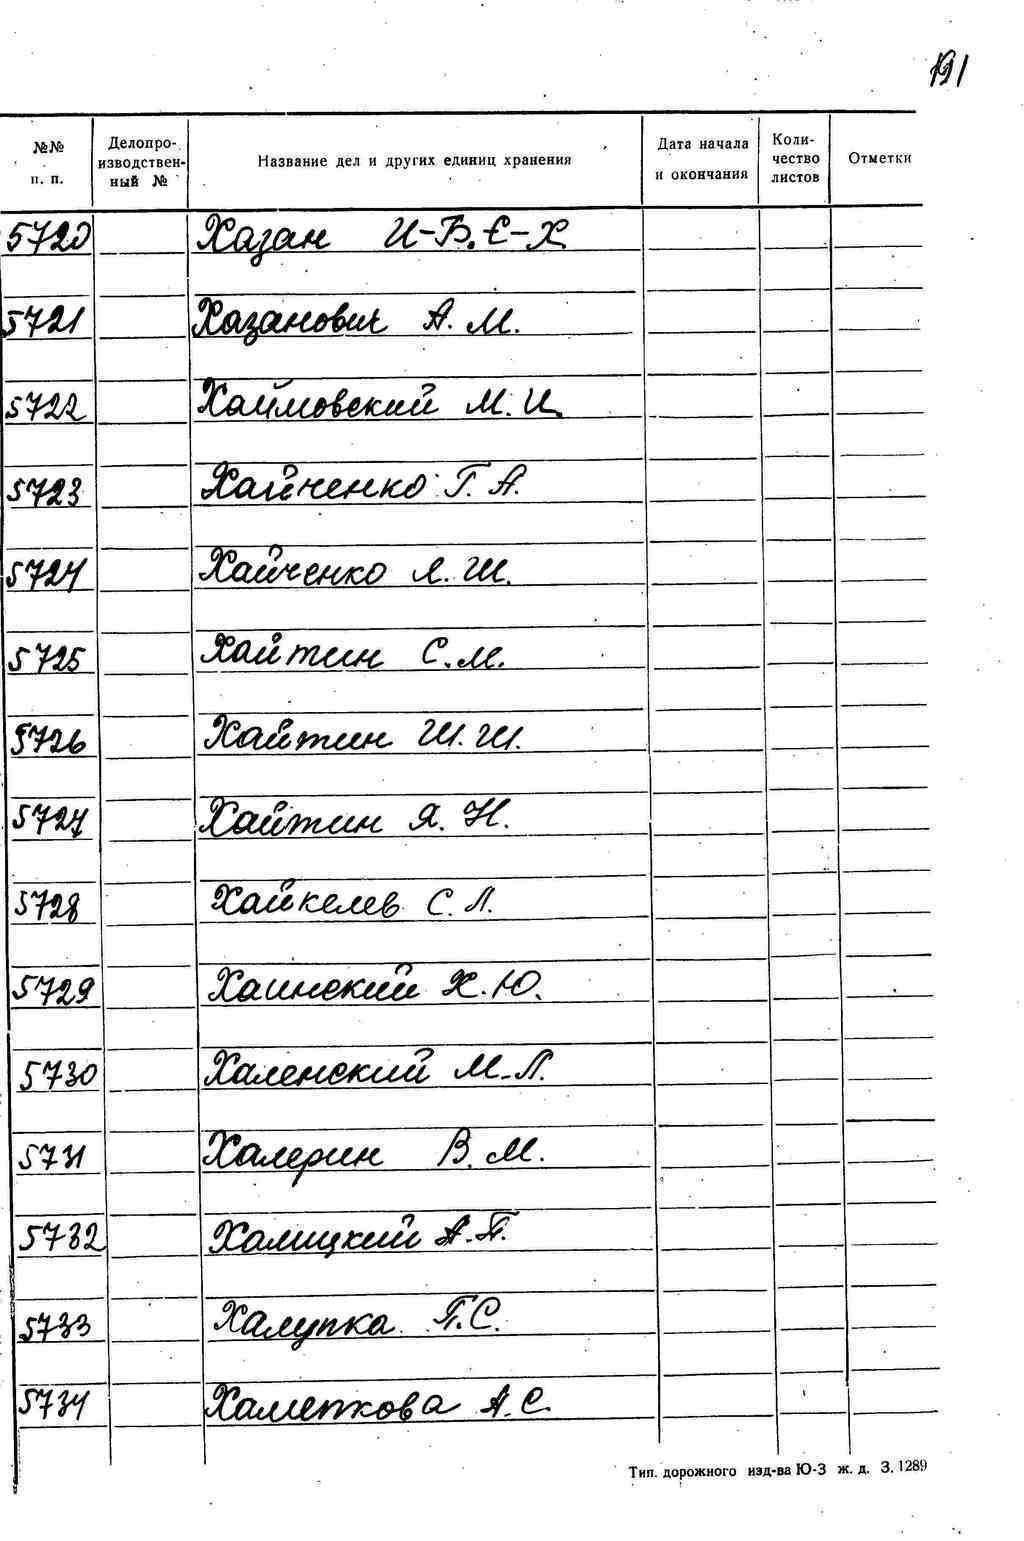 191
№№ п. п. Делопро-изводствен-ный № Название дел и других единиц хранения Дата начала и окончания Коли-чество листов Отметки
5720 Хазан И-Б. Е-Х
5721 Хазанович А. М.
5722 Хаимовский М. И.
5723 Хайченко Г. А.
5724 Хайченко Л. Ш.
5725 Хайтин С. М.
5726 Хайтин Ш. Ш.
5727 Хайтин Я. Н.
5728 Хайкелев С. Л.
5729 Хаинский Х. Ю.
5730 Халенский М-Л.
5731 Халерин В. М.
5732 Халицкий А. П.
5733 Халупка П. С.
5734 А. С.
Тип. дорожного изд-ва Ю-З ж. д. З. 1289